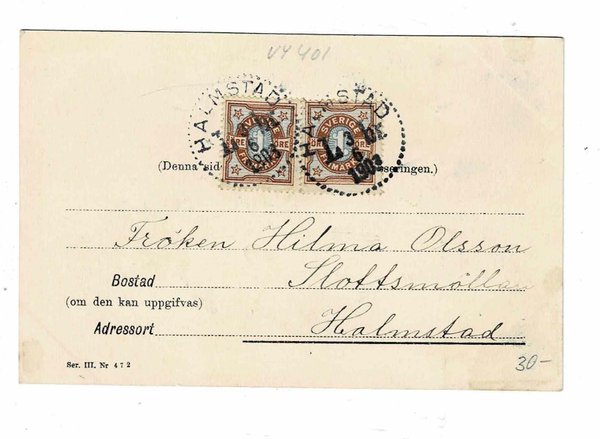 VY 401
HALMSTAD
HALMSTAD
SVERIGE
SVERIGE
ÖRE 1 ÖRE
ÖRE 1
FRIMÄRKE
6
1903
6
1903
(Denna sid
sseringen.)
Fröken Hilma Olsson
Bostad Slottsmöllan
(om den kan uppgifvas)
Adressort Halmstad
Ser. III. Nr 472
30-